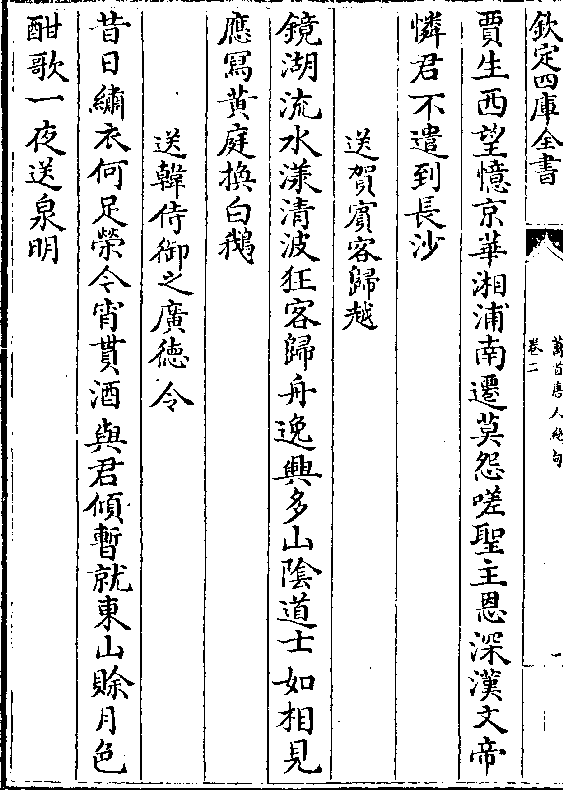 欽定四庫全書
萬首唐人絶句
卷二
一
賈生西望憶京華湘浦南遷莫怨嗟聖主恩深漢文帝
憐君不遣到長沙
送賀賓客歸越
鏡湖流水漾清波狂客歸舟逸興多山陰道士如相見
應冩黄庭換白鵝
送韓侍御之廣徳令
昔日繡衣何足榮今宵貰酒與君傾暫就東山賖月色
酣歌一夜送泉明